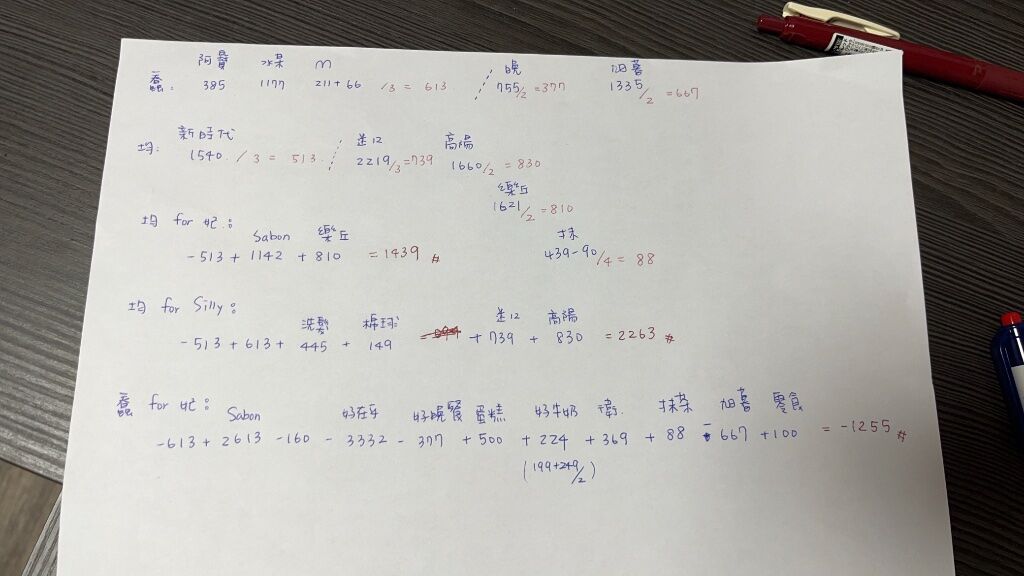 阿嬤 水果 m 晚 旭暮
蠢: 385 1177 211+66 /3 = 613 755/2 =377 1335/2 =667
新時代 送12 高陽
均: 1540. /3 = 513. 2219/3=739 1660/2 =830
樂丘
1621/2 =810
均 for 妃:
Sabon 樂丘 抹
-513 + 1142 + 810 = 1439 # 439-90/4 = 88
均 for Silly:
洗髮 棉球 送12 高陽
-513 + 613 + 445 + 149 + 739 + 830 = 2263 #
蠢 for 妃: Sabon 好在乎 好晚餐 蛋糕 好牛奶 衛. 抹茶 旭暮 零食
-613 + 2613 -160 - 3332 - 377 + 500 + 224 + 369 + 88 - 667 +100 = -1255 #
(199+249/2)